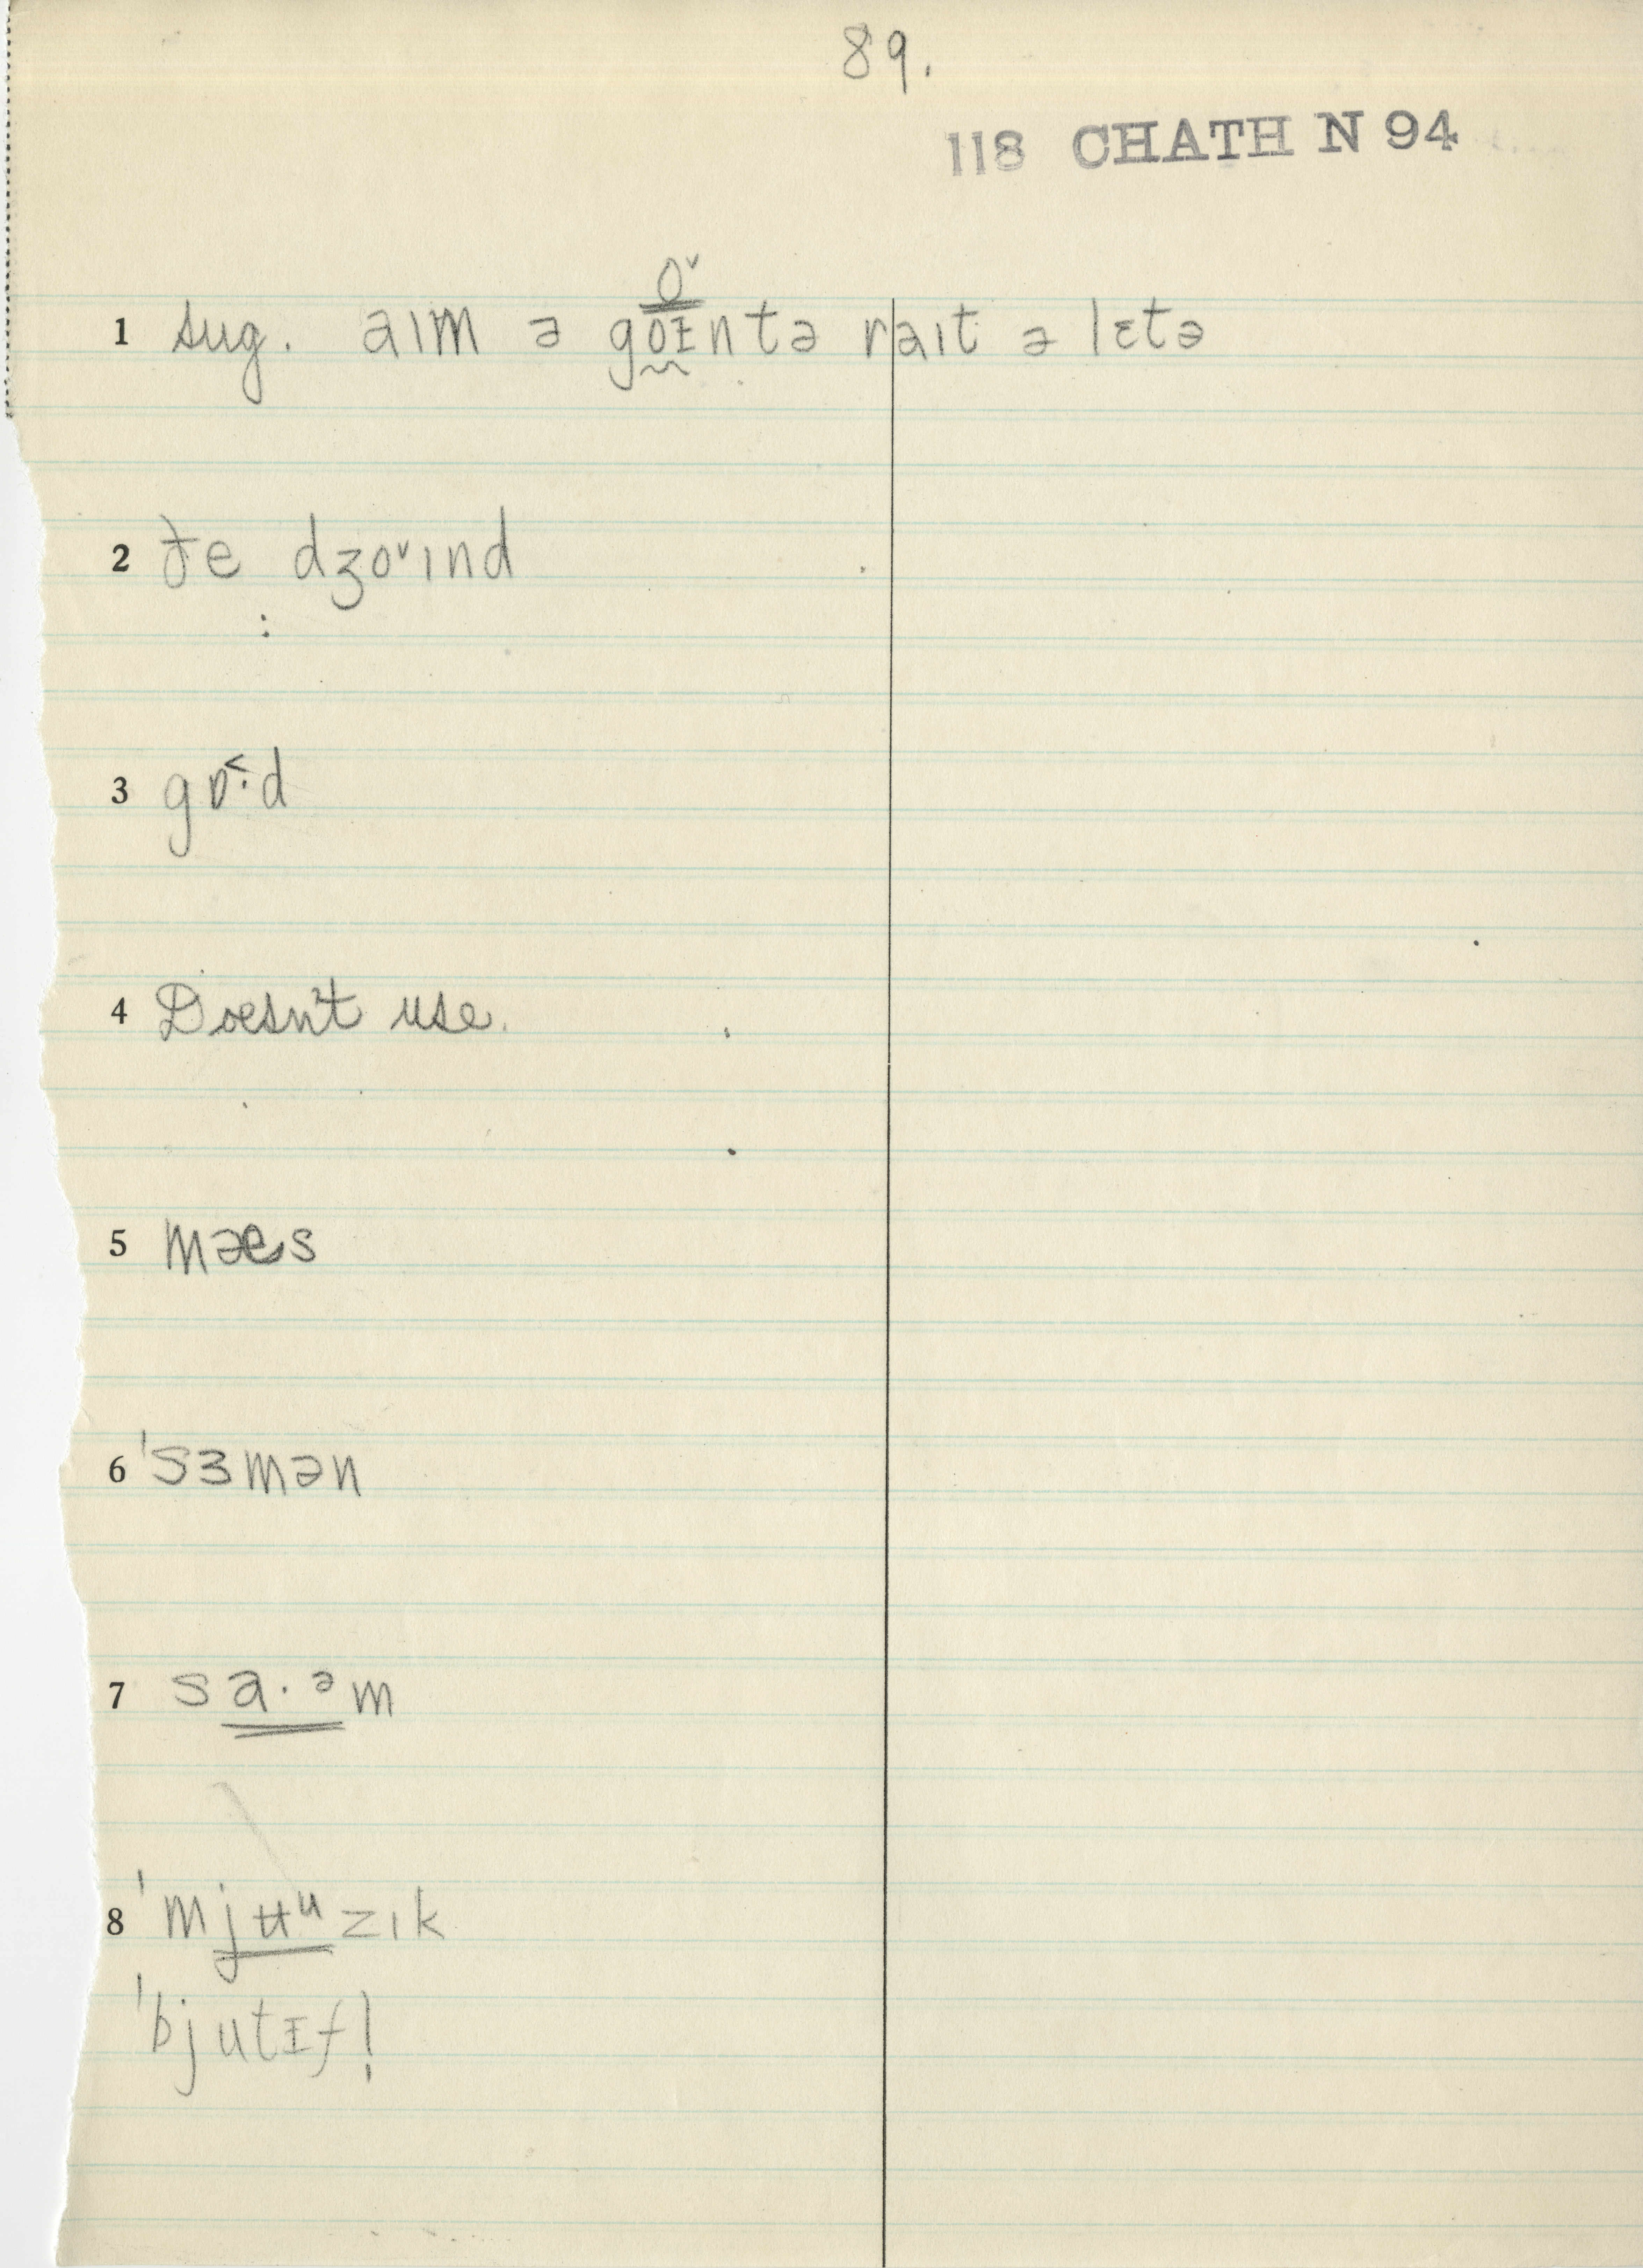 89.
118 CHATH N 94
1 sug. aɪm ə goɪntə raɪt ə lɛtə
2 ðe dʒo˅ɪnd
3 gɒ˂·d
4 Doesn't use.
5 mæs
6 ˈsɜmən
7 sa·ᵊm
8 ˈmjʉᵘzɪk
ˈbjutɪf!